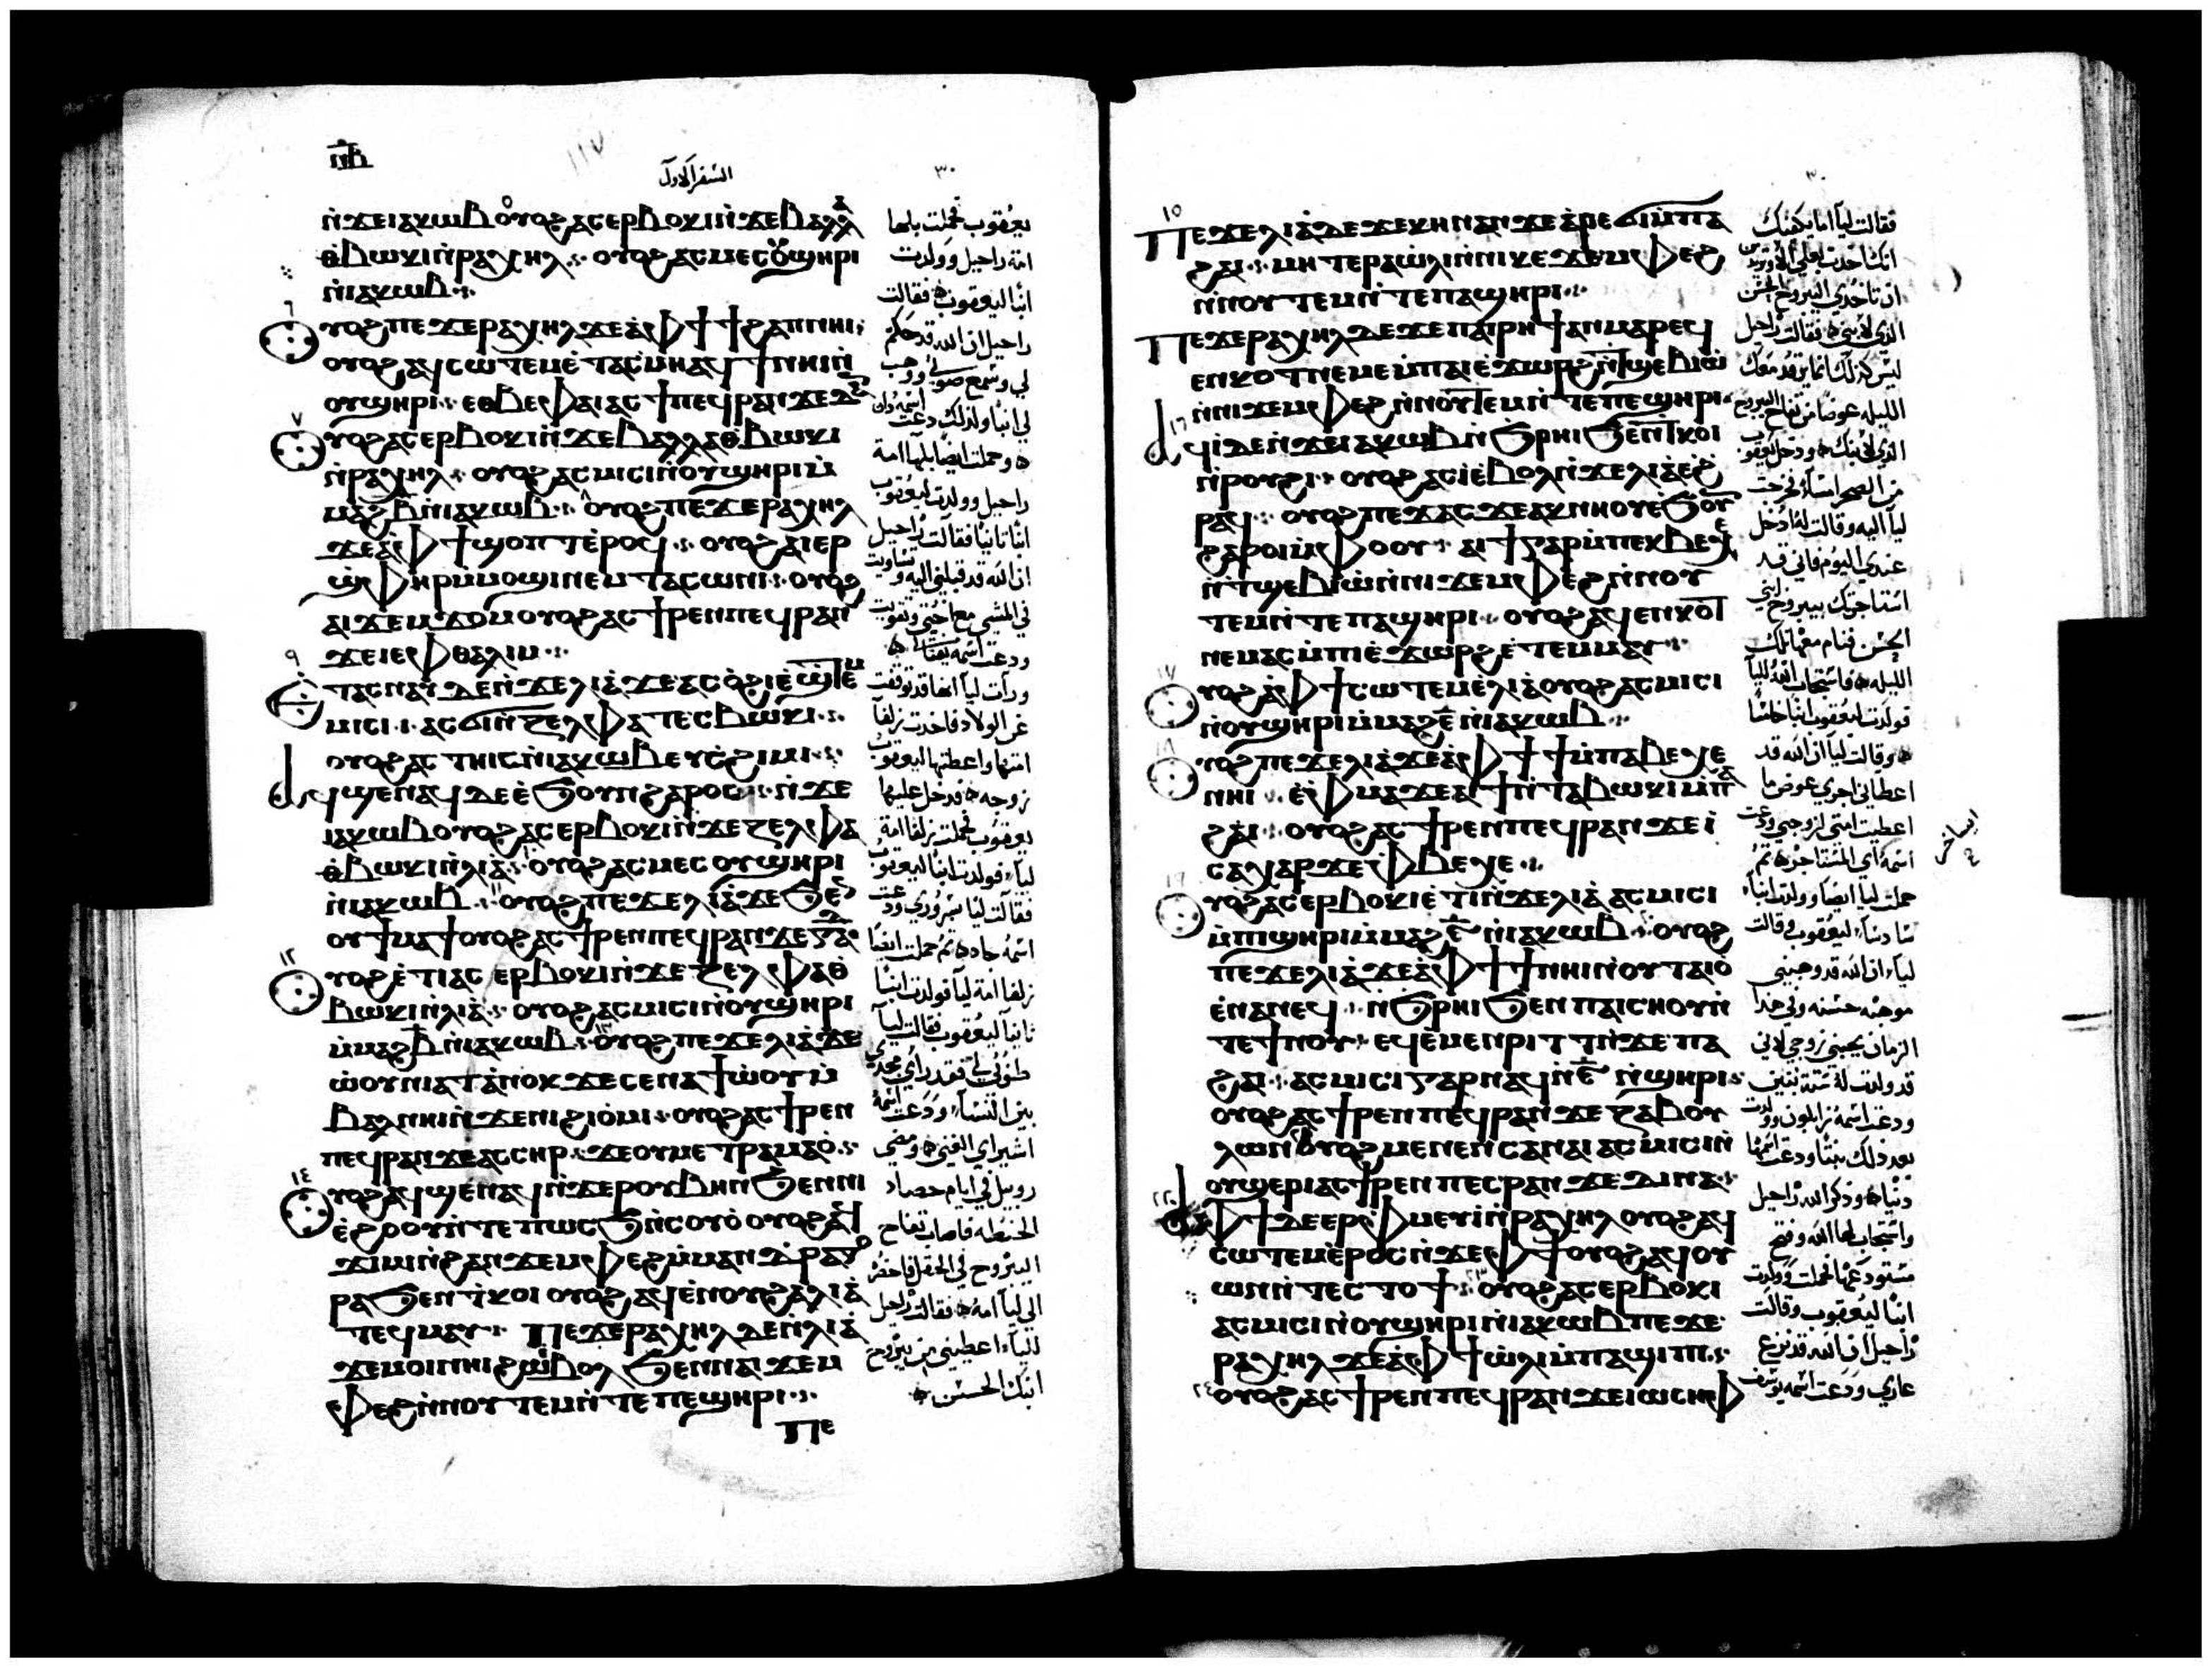 ⲡⲃ
السفر الاول
٣٠
ⲛ̀ϫⲉⲓⲁⲕⲱⲃ ⲟⲩⲟϩ ⲁⲥⲉⲣⲃⲟⲕⲓ ⲛ̀ϫⲉ ⲃⲁⲗⲗⲁ
ⲑⲃⲱⲕⲓ ⲛ̀ⲣⲁⲭⲏⲗ ⲟⲩⲟϩ ⲁⲥⲙⲉⲥ ⲟⲩϣⲏⲣⲓ
ⲛ̀ⲓⲁⲕⲱⲃ
ⲟⲩⲟϩ ⲡⲉϫⲉ ⲣⲁⲭⲏⲗ ϫⲉ ⲁ̀ ⲫϯ ϯϩⲁⲡ ⲛⲏⲓ
ⲟⲩⲟϩ ⲁϥⲥⲱⲧⲉⲙ ⲉ̀ⲧⲁⲥⲙⲏ ⲁϥϯ ⲛⲏⲓ ⲛ̀
ⲟⲩϣⲏⲣⲓ ⲉⲑⲃⲉ ⲫⲁⲓ ⲁⲥϯ ⲡⲉϥⲣⲁⲛ ϫⲉ ⲇⲁⲛ
ⲟⲩⲟϩ ⲁⲥⲉⲣⲃⲟⲕⲓ ⲛ̀ϫⲉ ⲃⲁⲗⲗⲁ ⲑⲃⲱⲕⲓ
ⲛ̀ⲣⲁⲭⲏⲗ ⲟⲩⲟϩ ⲁⲥⲙⲓⲥⲓ ⲛ̀ⲟⲩϣⲏⲣⲓ ⲙ̀
ⲙⲁϩⲃ̅ ⲛ̀ⲓⲁⲕⲱⲃ ⲟⲩⲟϩ ⲡⲉϫⲉ ⲣⲁⲭⲏⲗ
ϫⲉ ⲁ̀ ⲫϯ ϣⲟⲡⲧ ⲉ̀ⲣⲟϥ ⲟⲩⲟϩ ⲁⲓⲉⲣ
ϣ̀ⲫⲏⲣ ⲙ̀ⲙⲟϣⲓ ⲛⲉⲙ ⲧⲁⲥⲱⲛⲓ ⲟⲩⲟϩ
ⲁⲓϫⲉⲙϫⲟⲙ ⲟⲩⲟϩ ⲁⲥϯⲣⲉⲛ ⲡⲉϥⲣⲁⲛ
ϫⲉ ⲓⲉⲫⲑⲁⲗⲓⲙ
ⲉⲧⲁⲥⲛⲁⲩ ⲇⲉ ⲛ̀ϫⲉ ⲗⲓⲁ̀ ϫⲉ ⲁⲥⲟ̀ϩⲓ ⲉ̀ϣⲧⲉⲙ
ⲙⲓⲥⲓ ⲁⲥϭⲓ ⲛ̀ⲍⲉⲗⲫⲁ ⲧⲉⲥⲃⲱⲕⲓ
ⲟⲩⲟϩ ⲁⲥⲧⲏⲓⲥ ⲛ̀ⲓⲁⲕⲱⲃ ⲉⲩⲥ̀ϩⲓⲙⲓ
ⲁϥϣⲉⲛⲁϥ ⲇⲉ ⲉ̀ϧⲟⲩⲛ ϩⲁⲣⲟⲥ ⲛ̀ϫⲉ
ⲓⲁⲕⲱⲃ ⲟⲩⲟϩ ⲁⲥⲉⲣⲃⲟⲕⲓ ⲛ̀ϫⲉ ⲍⲉⲗⲫⲁ
ⲑⲃⲱⲕⲓ ⲛ̀ⲗⲓⲁ̀ ⲟⲩⲟϩ ⲁⲥⲙⲉⲥ ⲟⲩϣⲏⲣⲓ
ⲛ̀ⲓⲁⲕⲱⲃ ⲟⲩⲟϩ ⲡⲉϫⲉ ⲗⲓⲁ̀ ϫⲉ ϧⲉⲛ
ⲟⲩϯⲙⲁϯ ⲟⲩⲟϩ ⲁⲥϯⲣⲉⲛ ⲡⲉϥⲣⲁⲛ ϫⲉ ⲅⲁⲇ
ⲟⲩⲟϩ ⲉ̀ⲧⲓ ⲁⲥⲉⲣⲃⲟⲕⲓ ⲛ̀ϫⲉ ⲍⲉⲗⲫⲁ ⲑ
ⲃⲱⲕⲓ ⲛ̀ⲗⲓⲁ̀ ⲟⲩⲟϩ ⲁⲥⲙⲓⲥⲓ ⲛ̀ⲟⲩϣⲏⲣⲓ
ⲙ̀ⲙⲁϩⲃ̅ ⲛ̀ⲓⲁⲕⲱⲃ ⲟⲩⲟϩ ⲡⲉϫⲉ ⲗⲓⲁ̀ ϫⲉ
ⲱ̀ⲟⲩⲛⲓⲁⲧ ⲁ̀ⲛⲟⲕ ϫⲉ ⲥⲉⲛⲁϯⲱ̀ⲟⲩ ⲙ̀
ⲙⲁⲕⲁⲣⲓⲍⲓⲛ ⲛⲏⲓ ⲛ̀ϫⲉ ⲛⲓϩⲓⲟ̀ⲙⲓ ⲟⲩⲟϩ ⲁⲥϯⲣⲉⲛ
ⲡⲉϥⲣⲁⲛ ϫⲉ ⲁⲥⲥⲏⲣ ϫⲉ ⲟⲩⲙⲉⲧⲣⲁⲙⲁⲟ̀
ⲟⲩⲟϩ ⲁϥϣⲉⲛⲁϥ ⲛ̀ϫⲉ ⲣⲟⲩⲃⲏⲛ ϧⲉⲛ ⲛⲓ
ⲉ̀ϩⲟⲟⲩ ⲛ̀ⲧⲉ ⲡⲱⲥϧ ⲛ̀ⲥⲟⲩⲟ̀ ⲟⲩⲟϩ ⲁϥ
ϫⲓⲙⲓ ⲛ̀ϩⲁⲛϫⲉⲙⲫⲉϩ ⲙ̀ⲙⲁⲛⲇⲣⲁⲅⲟ
ⲣⲁ ϧⲉⲛ ⲧ̀ⲕⲟⲓ ⲟⲩⲟϩ ⲁϥⲉⲛⲟⲩ ϩⲁ ⲗⲓⲁ̀
ⲧⲉϥⲙⲁⲩ ⲡⲉϫⲉ ⲣⲁⲭⲏⲗ ⲇⲉ ⲛ̀ⲗⲓⲁ̀
ϫⲉ ⲙⲟⲓ ⲛⲏⲓ ⲉ̀ⲃⲟⲗ ϧⲉⲛ ⲛⲁ ϫⲉⲙ
ⲫⲉϩ ⲛ̀ⲛⲟⲩⲧⲉⲙ ⲛ̀ⲧⲉ ⲡⲉϣⲏⲣⲓ
ⲡⲉ
يعقوب فحملت بلها
امة راحيل وولدت
ابنا ليعقوب فقالت
راحيل ان الله قد حكم
لي وسمع صوتي ووهب
لي ابنا ولذلك دعت اسمه دان
وحملت ايضا بلها امة
راحيل وولدت ليعقوب
ابنا ثانيا فقالت راحيل
ان الله قد قبلني اليه وتساويت
في المشي مع اختي وتقويت
ودعت اسمه يفتاليم
ورات ليا انها قد توقفت
عن الولاد فاخذت زلفا
امتها واعطتها ليعقوب
زوجه فدخل عليها
يعقوب فحملت زلفا امة
ليا فولدت ابنا ليعقوب
فقالت ليا بسروري ودعت
اسمه جاد ثم حملت ايضا
زلفا امة ليا فولدت ابنا
ثانيا ليعقوب فقالت ليا
بين النسا ودعت اسمه
اشير اي الغني ومضى
روبيل في ايام حصاد
الحنطه فاصاب تفاح
اليبروح في الحقل فاحضره
الى ليا امه فقالت راحيل
لليا اعطيني من يبروح
ابنك الحسن
٣٠
ⲡⲉϫⲉ ⲗⲓⲁ̀ ⲇⲉ ϫⲉ ⲕⲏⲛ ⲁⲛ ϫⲉ ⲁ̀ⲣⲉϭⲓ ⲙ̀ⲡⲁ
ϩⲁⲓ ⲙⲏ ⲧⲉⲣⲁⲱ̀ⲗⲓ ⲛ̀ⲛⲓⲕⲉϫⲉⲙⲫⲉϩ
ⲛ̀ⲛⲟⲩⲧⲉⲙ ⲛ̀ⲧⲉ ⲡⲁϣⲏⲣⲓ
ⲡⲉϫⲉ ⲣⲁⲭⲏⲗ ⲇⲉ ϫⲉ ⲡⲁⲓⲣⲏϯ ⲁⲛ ⲙⲁⲣⲉϥ
ⲉⲛⲕⲟⲧ ⲛⲉⲙⲉ ⲙ̀ⲡⲁⲓⲉ̀ϫⲱⲣϩ ⲛ̀ⲧϣⲉⲃⲓⲱ̀
ⲛ̀ⲛⲓϫⲉⲙⲫⲉϩ ⲛ̀ⲛⲟⲩⲧⲉⲙ ⲛ̀ⲧⲉ ⲡⲉϣⲏⲣⲓ
ⲁϥⲓ̀ ⲇⲉ ⲛ̀ϫⲉ ⲓⲁⲕⲱⲃ ⲛ̀ϧⲣⲏⲓ ϧⲉⲛ ⲧⲕⲟⲓ
ⲛ̀ⲣⲟⲩϩⲓ ⲟⲩⲟϩ ⲁⲥⲓ̀ ⲉ̀ⲃⲟⲗ ⲛ̀ϫⲉ ⲗⲓⲁ̀ ⲉ̀ϩ
ⲣⲁϥ ⲟⲩⲟϩ ⲡⲉϫⲁⲥ ϫⲉ ⲁⲕⲛⲏⲟⲩ ⲉ̀ϧⲟⲩⲛ
ϩⲁⲣⲟⲓ ⲙ̀ⲫⲟⲟⲩ ⲁⲓϯ ⲅⲁⲣ ⲙ̀ⲡⲉⲕⲃⲉⲭⲉ
ⲛ̀ⲧϣⲉⲃⲓⲱ̀ ⲛ̀ⲛⲓϫⲉⲙⲫⲉϩ ⲛ̀ⲛⲟⲩ
ⲧⲉⲙ ⲛ̀ⲧⲉ ⲡⲁϣⲏⲣⲓ ⲟⲩⲟϩ ⲁϥⲉⲛⲕⲟⲧ
ⲛⲉⲙⲁⲥ ⲙ̀ⲡⲓⲉ̀ϫⲱⲣϩ ⲉ̀ⲧⲉⲙⲙⲁⲩ
ⲟⲩⲟϩ ⲁ̀ ⲫϯ ⲥⲱⲧⲉⲙ ⲉ̀ⲗⲓⲁ̀ ⲟⲩⲟϩ ⲁⲥⲙⲓⲥⲓ
ⲛ̀ⲟⲩϣⲏⲣⲓ ⲙ̀ⲙⲁϩⲉ̅ ⲛ̀ⲓⲁⲕⲱⲃ
ⲟⲩⲟϩ ⲡⲉϫⲉ ⲗⲓⲁ̀ ϫⲉ ⲁ̀ ⲫϯ ϯ ⲙ̀ⲡⲁⲃⲉⲭⲉ
ⲛⲏⲓ ⲉ̀ⲫⲙⲁ ϫⲉ ⲁⲓϯ ⲛ̀ⲧⲁⲃⲱⲕⲓ ⲙ̀ⲡⲁ
ϩⲁⲓ ⲟⲩⲟϩ ⲁⲥϯⲣⲉⲛ ⲡⲉϥⲣⲁⲛ ϫⲉ ⲓ̀
ⲥⲁⲭⲁⲣ ϫⲉ ⲫⲃⲉⲭⲉ
ⲟⲩⲟϩ ⲁⲥⲉⲣⲃⲟⲕⲓ ⲉ̀ⲧⲓ ⲛ̀ϫⲉ ⲗⲓⲁ̀ ⲁⲥⲙⲓⲥⲓ
ⲙ̀ⲡϣⲏⲣⲓ ⲙ̀ⲙⲁϩⲋ̅ ⲛ̀ⲓⲁⲕⲱⲃ ⲟⲩⲟϩ
ⲡⲉϫⲉ ⲗⲓⲁ̀ ϫⲉ ⲁ̀ ⲫϯ ϯ ⲛⲏⲓ ⲛ̀ⲟⲩⲧⲁⲓⲟ̀
ⲉ̀ⲛⲁⲛⲉϥ ⲛ̀ϧⲣⲏⲓ ϧⲉⲛ ⲡⲁⲓⲥⲏⲟⲩ ⲛ̀
ⲧⲉ ϯⲛⲟⲩ ⲉϥⲉ̀ⲙⲉⲛⲣⲓⲧⲧ ⲛ̀ϫⲉ ⲡⲁ
ϩⲁⲓ ⲁⲥⲙⲓⲥⲓ ⲅⲁⲣ ⲛⲁϥ ⲛ̀ⲋ̅ ⲛ̀ϣⲏⲣⲓ
ⲟⲩⲟϩ ⲁⲥϯⲣⲉⲛ ⲡⲉϥⲣⲁⲛ ϫⲉ ⲍⲁⲃⲟⲩ
ⲗⲱⲛ ⲟⲩⲟϩ ⲙⲉⲛⲉⲛⲥⲁ ⲛⲁⲓ ⲁⲥⲙⲓⲥⲓ ⲛ̀
ⲟⲩϣⲉⲣⲓ ⲁⲥϯⲣⲉⲛ ⲡⲉⲥⲣⲁⲛ ϫⲉ ⲇⲓⲛⲁ
ⲁ̀ ⲫϯ ⲇⲉ ⲉⲣⲫⲙⲉⲩⲓ̀ ⲛ̀ⲣⲁⲭⲏⲗ ⲟⲩⲟϩ ⲁϥ
ⲥⲱⲧⲉⲙ ⲉ̀ⲣⲟⲥ ⲛ̀ϫⲉ ⲫϯ ⲟⲩⲟϩ ⲁϥⲟⲩ
ⲱⲛ ⲛ̀ⲧⲉⲥⲧⲟϯ ⲟⲩⲟϩ ⲁⲥⲉⲣⲃⲟⲕⲓ
ⲁⲥⲙⲓⲥⲓ ⲛ̀ⲟⲩϣⲏⲣⲓ ⲛ̀ⲓⲁⲕⲱⲃ ⲡⲉϫⲉ
ⲣⲁⲭⲏⲗ ϫⲉ ⲁ̀ ⲫϯ ⲱ̀ⲗⲓ ⲙ̀ⲡⲁϣⲓⲡⲓ
ⲟⲩⲟϩ ⲁⲥϯⲣⲉⲛ ⲡⲉϥⲣⲁⲛ ϫⲉ ⲓⲱⲥⲏⲫ
فقالت ليا اما يكفيك
انك اخذت بعلي
ان تاخذي اليبروح الحسن
الذي لابني فقالت راحيل
ليس كذلك انما يرقد معك
الليله عوضا من تفاح اليبروح
الذي لابنك ودخل يعقوب
من الصحرا مساء فخرجت
ليا اليه وقالت له ادخل
عندي اليوم فاني قد
استاجرتك بيبروح ابني
الحسن فنام معها تلك
الليله فاستجاب الله لليا
فولدت ليعقوب ابنا خامسا
وقالت ليا ان الله قد
اعطاني اجري عوض ما
اعطيت امتي لزوجي ودعت
حملت ليا ايضا وولدت ابنا
سادسا ليعقوب وقالت
ليا ان الله قد وهبني
موهبه حسنه وفي هذا
الزمان يحبني زوجي لاني
قد ولدت له ستة بنين
ودعت اسمه زابلون وولدت
بعد ذلك بنتا ودعت اسمها
دينا وذكر الله راحيل
واستجاب لها الله وفتح
مستودعها فحملت وولدت
ابنا ليعقوب وقالت
راحيل ان الله قد نزع
عاري ودعت اسمه يوسف